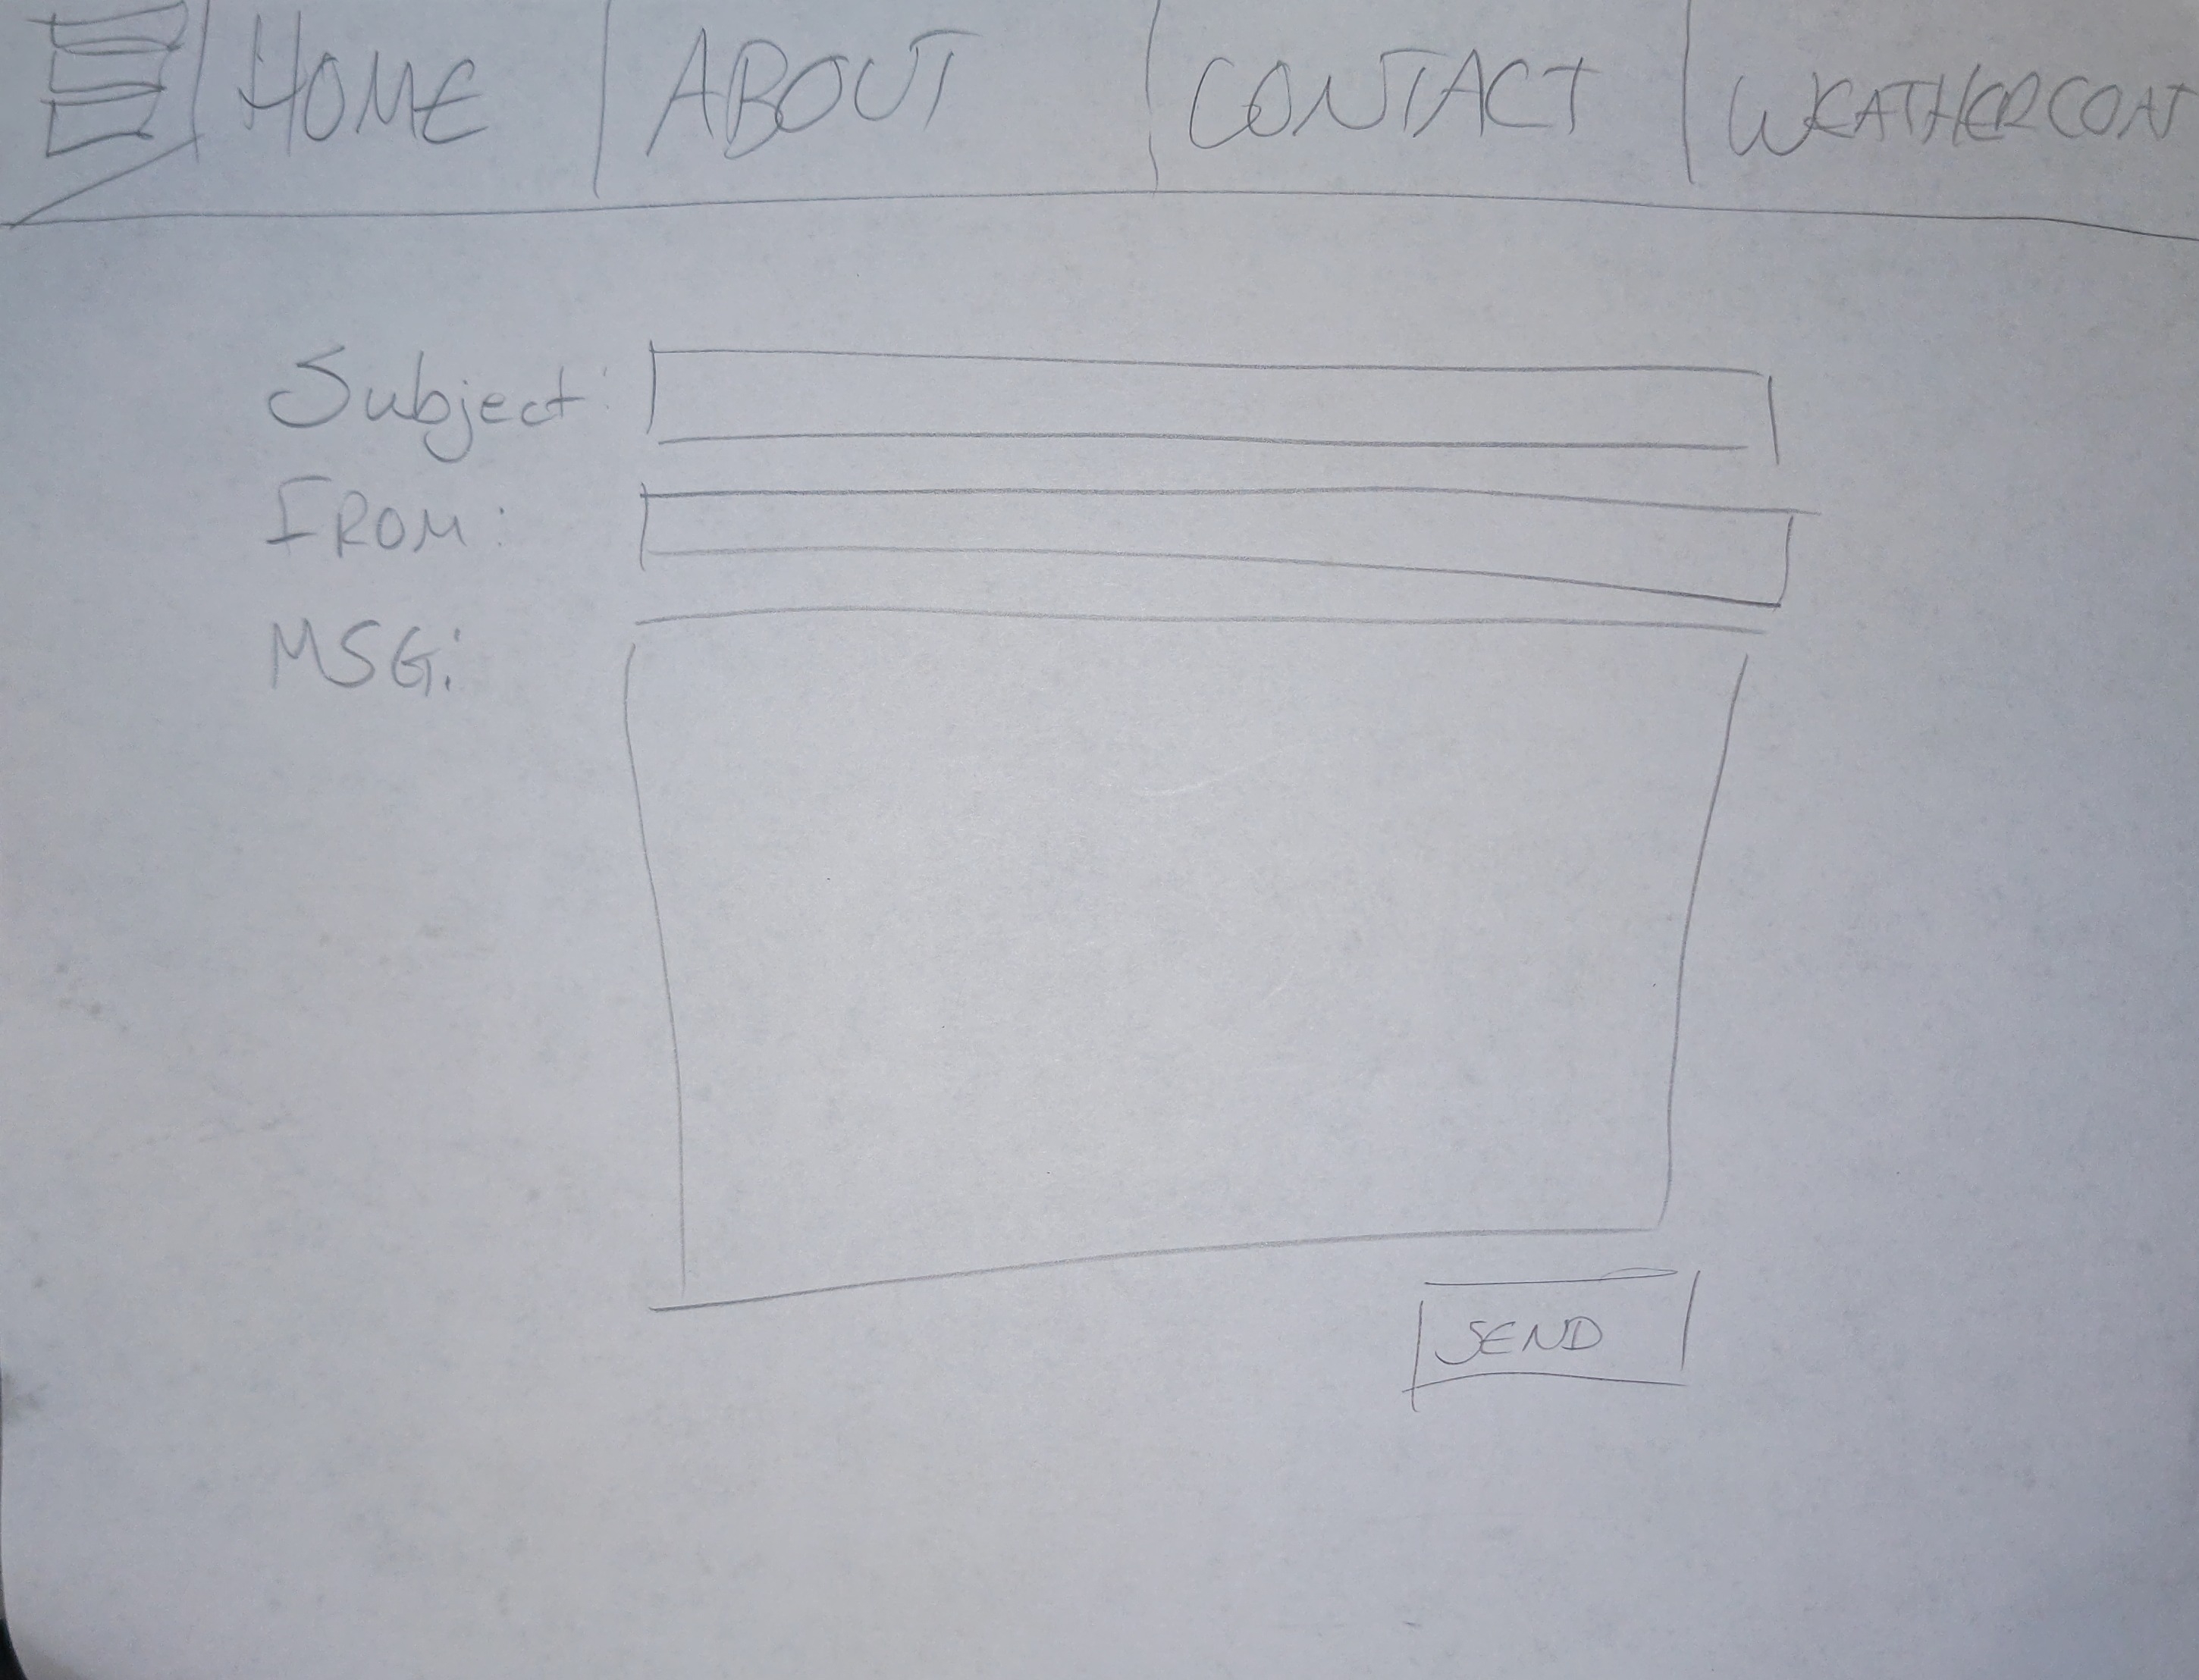 HOME ABOUT CONTACT WEATHERCON
Subject:
FROM:
MSG:
SEND